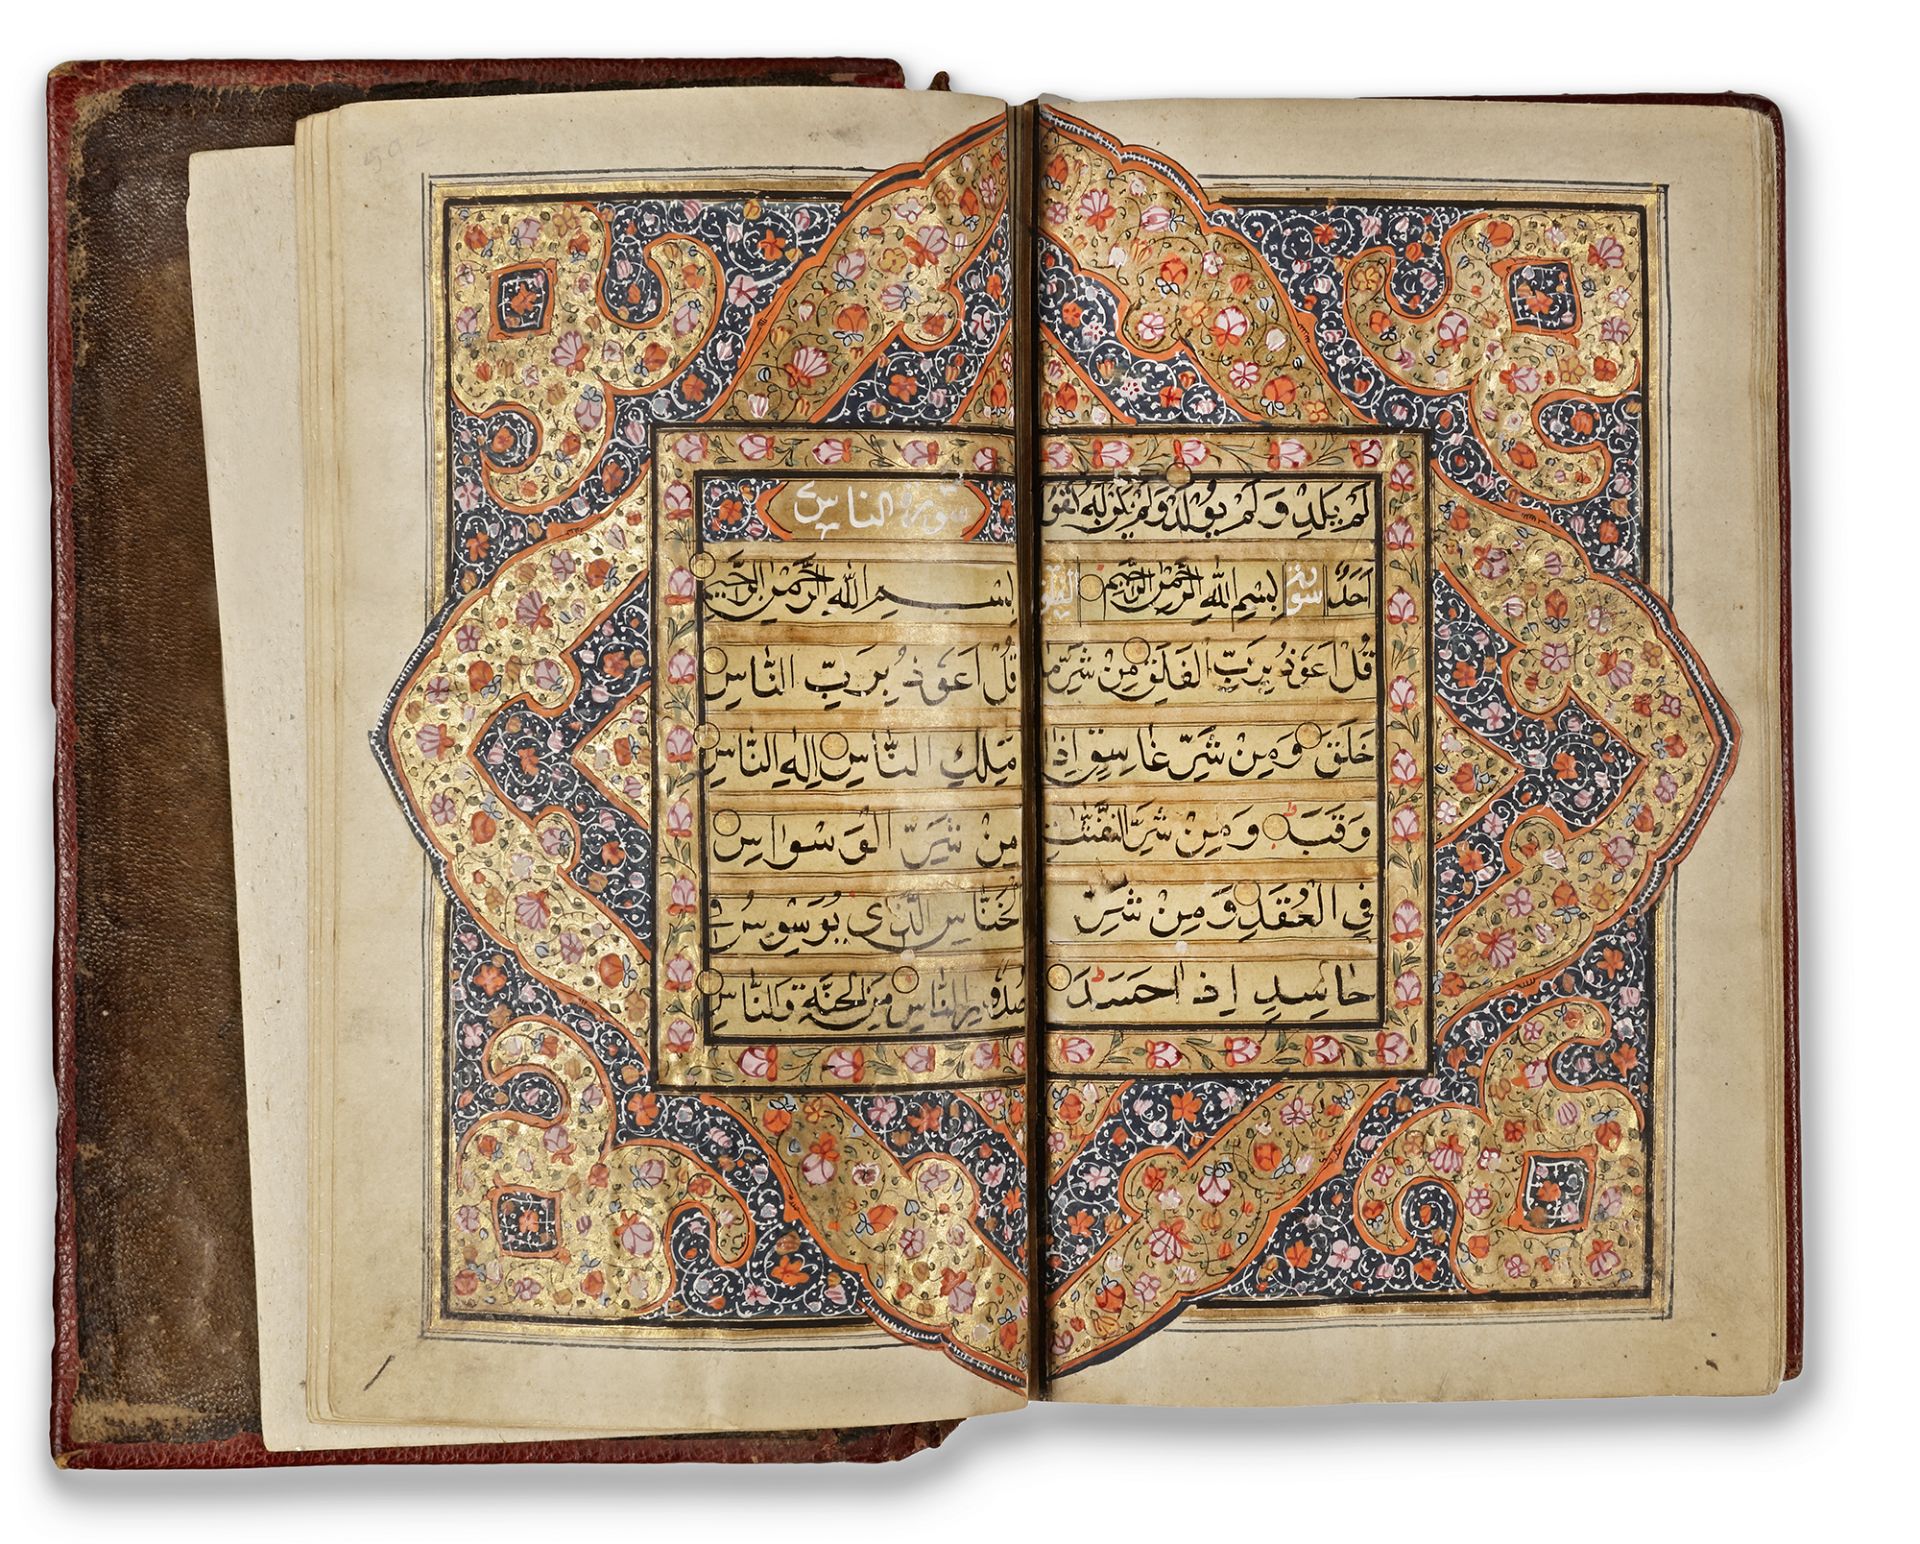 لَمْ يَلِدْ وَلَمْ يُولَدْ وَلَمْ يَكُنْ لَهُ كُفُوًا
اَحَدٌ سورة بِسْمِ اللّٰهِ الرَّحْمٰنِ الرَّحِيمِ الفلق
قُلْ اَعُوذُ بِرَبِّ الْفَلَقِ مِنْ شَرِّ مَا
خَلَقَ وَمِنْ شَرِّ غَاسِقٍ اِذَا
وَقَبَ وَمِنْ شَرِّ النَّفّٰثٰتِ
فِي الْعُقَدِ وَمِنْ شَرِّ
حَاسِدٍ اِذَا حَسَدَ
سورة الناس
بِسْمِ اللّٰهِ الرَّحْمٰنِ الرَّحِيمِ
قُلْ اَعُوذُ بِرَبِّ النَّاسِ
مَلِكِ النَّاسِ اِلٰهِ النَّاسِ
مِنْ شَرِّ الْوَسْوَاسِ
الْخَنَّاسِ الَّذِي يُوَسْوِسُ فِي
صُدُورِ النَّاسِ مِنَ الْجِنَّةِ وَالنَّاسِ